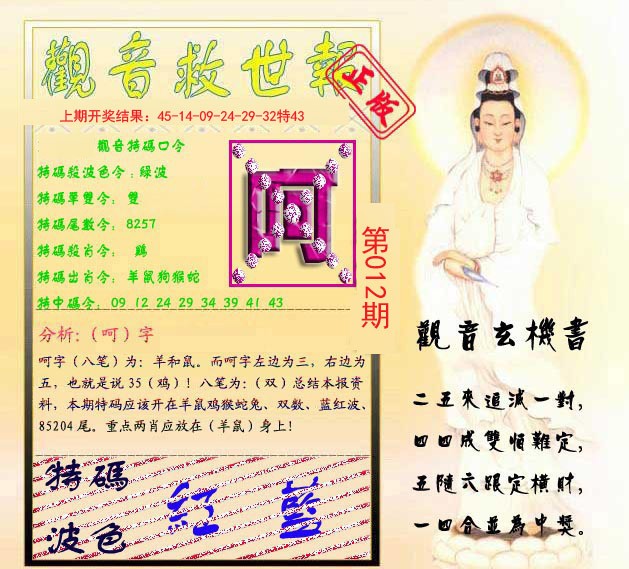 觀音救世報
正版
上期开奖结果：45-14-09-24-29-32特43
觀音特碼口令
特碼殺波色令：綠波
特碼單雙令： 雙
特碼尾數令： 8257
特碼殺肖令： 鷄
特碼出肖令： 羊鼠狗猴蛇
特中碼令： 09 12 24 29 34 39 41 43
呵
第012期
分析：（呵）字
呵字（八笔）为：羊和鼠。而呵字左边为三，右边为
五，也就是说 35（鸡）！八笔为：（双）总结本报资
料，本期特码应该开在羊鼠鸡猴蛇兔、双数、蓝红波、
85204 尾。重点两肖应放在（羊鼠）身上！
特碼
波色
紅 藍
觀音玄機書
二五來追減一對，
四四成雙恒難定，
五隨六跟定橫財，
一四合並為中獎。